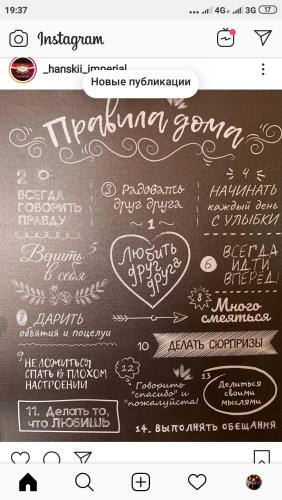 19:37
4G 3G 17
Instagram
_hanskii_imperial
Новые публикации
Правила дома
2
ВСЕГДА
ГОВОРИТЬ
ПРАВДУ
3 Радовать
друг друга
4
НАЧИНАТЬ
каждый день
С УЛЫБКИ
1
Любить
друг
друга
Верить 5
в себя
6 ВСЕГДА
ИДТИ
ВПЕРЁД!
7 ДАРИТЬ
объятия и поцелуи
8 Много
смеяться
9 НЕ ЛОЖИТЬСЯ
СПАТЬ В ПЛОХОМ
НАСТРОЕНИИ
10 ДЕЛАТЬ СЮРПРИЗЫ
11. Делать то,
что ЛЮБИШЬ
12
Говорить
"спасибо" и
"пожалуйста!"
13
Делиться
своими
мыслями
14. ВЫПОЛНЯТЬ ОБЕЩАНИЯ